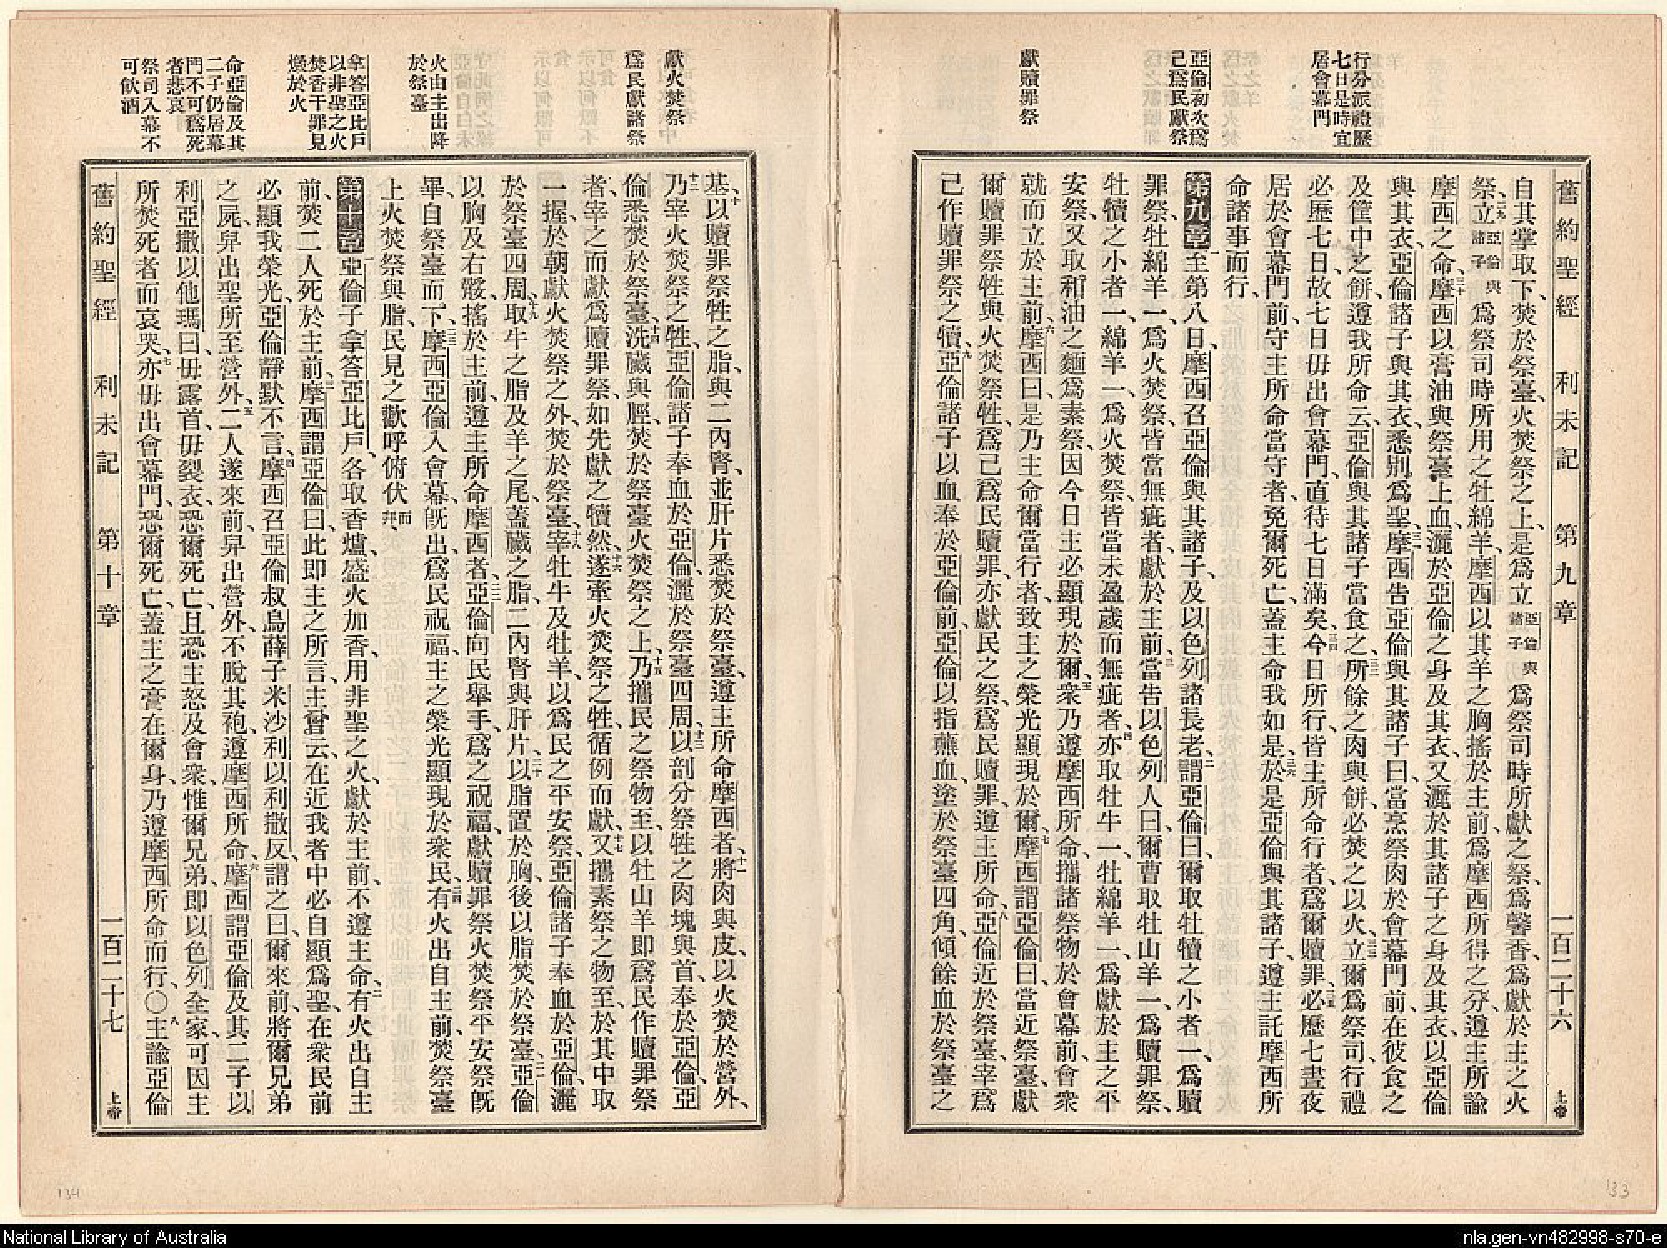 行分派禮歷
七日是時宜
居會幕門
亞倫初次爲
己爲民獻祭
獻贖罪祭
舊約聖經 利未記 第九章 一百二十六 上帝
自其掌取下、焚於祭臺、火焚祭之上、是爲立亞倫與諸子爲祭司時所獻之祭、爲馨香、爲獻於主之火
祭、二九立亞倫與諸子爲祭司時所用之牡綿羊、摩西以其羊之胸搖於主前、爲摩西所得之分、遵主所諭
摩西之命、三十摩西以膏油與祭臺上血、灑於亞倫之身及其衣、又灑於其諸子之身及其衣、以亞倫
與其衣、亞倫諸子與其衣、悉別爲聖、三一摩西告亞倫與其諸子曰、當烹祭肉於會幕門前、在彼食之
及筐中之餅、遵我所命云、亞倫與其諸子當食之、三二所餘之肉與餅、必焚之以火、三三立爾爲祭司行禮
必歷七日、故七日毋出會幕門、直待七日滿矣、三四今日所行、皆主所命行者、爲爾贖罪、三五必歷七晝夜
居於會幕門前、守主所命當守者、免爾死亡、蓋主命我如是、三六於是亞倫與其諸子、遵主託摩西所
命諸事而行、
第九章 一至第八日、摩西召亞倫與其諸子、及以色列諸長老、二謂亞倫曰、爾取牡犢之小者一、爲贖
罪祭、牡綿羊一、爲火焚祭、皆當無疵者、獻於主前、三當告以色列人曰、爾曹取牡山羊一、爲贖罪祭、
牡犢之小者一、綿羊一、爲火焚祭、皆當未盈歲而無疵者、四亦取牡牛一、牡綿羊一、爲獻於主之平
安祭、又取和油之麵爲素祭、因今日主必顯現於爾、五衆乃遵摩西所命、攜諸祭物於會幕前、會衆
就而立於主前、六摩西曰、是乃主命爾當行者、致主之榮光顯現於爾、七摩西謂亞倫曰、當近祭臺、獻
爾贖罪祭牲、與火焚祭牲、爲己爲民贖罪、亦獻民之祭、爲民贖罪、遵主所命、八亞倫近於祭臺、宰爲
己作贖罪祭之犢、九亞倫諸子以血奉於亞倫前、亞倫以指蘸血、塗於祭臺四角、傾餘血於祭臺之
獻火焚祭
爲民獻諸祭
火由主出降
於祭臺
拿答亞比戶
以非聖之火
焚香干罪見
燬於火
命亞倫及其
二子仍居幕
門不可爲死
者悲哀
祭司入幕不
可飲酒
基、十以贖罪祭牲之脂、與二內腎、並肝片、悉焚於祭臺、遵主所命摩西者、十一將肉與皮、以火焚於營外、
十二乃宰火焚祭之牲、亞倫諸子奉血於亞倫、灑於祭臺四周、十三以剖分祭牲之肉塊與首、奉於亞倫、亞
倫悉焚於祭臺、十四洗臟與脛、焚於祭臺火焚祭之上、十五乃攜民之祭物至、以牡山羊卽爲民作贖罪祭
者、宰之而獻、爲贖罪祭、如先獻之犢然、十六遂牽火焚祭之牲、循例而獻、十七又攜素祭之物至、於其中取
一握、於朝獻火焚祭之外、焚於祭臺、十八宰牡牛及牡羊、以爲民之平安祭、亞倫諸子奉血於亞倫、灑
於祭臺四周、十九取牛之脂及羊之尾、蓋臟之脂、二內腎與肝片、二十以脂置於胸、後以脂焚於祭臺、二一亞倫
以胸及右髂、搖於主前、遵主所命摩西者、二二亞倫向民舉手、爲之祝福、獻贖罪祭火焚祭平安祭既
畢、自祭臺而下、二三摩西亞倫入會幕、既出、爲民祝福、主之榮光顯現於衆民、二四有火出自主前、焚祭臺
上火焚祭與脂、民見之歡呼俯伏而拜、
第十章 一亞倫子拿答亞比戶、各取香爐、盛火加香、用非聖之火、獻於主前、不遵主命、二有火出自主
前、焚二人死於主前、三摩西謂亞倫曰、此卽主之所言、主曾云、在近我者中必自顯爲聖、在衆民前
必顯我榮光、亞倫靜默不言、四摩西召亞倫叔烏薛子米沙利以利撒反、謂之曰、爾來前、將爾兄弟
之屍、舁出聖所至營外、五二人遂來前、舁出營外、不脫其袍、遵摩西所命、六摩西謂亞倫及其二子以
利亞撒以他瑪曰、毋露首、毋裂衣、恐爾死亡、且恐主怒及會衆、惟爾兄弟卽以色列全家、可因主
所焚死者而哀哭、七亦毋出會幕門、恐爾死亡、蓋主之膏在爾身、乃遵摩西所命而行、〇八主諭亞倫
舊約聖經 利未記 第十章 一百二十七 上帝
134
133
National Library of Australia
nla.gen-vn482998-s70-e